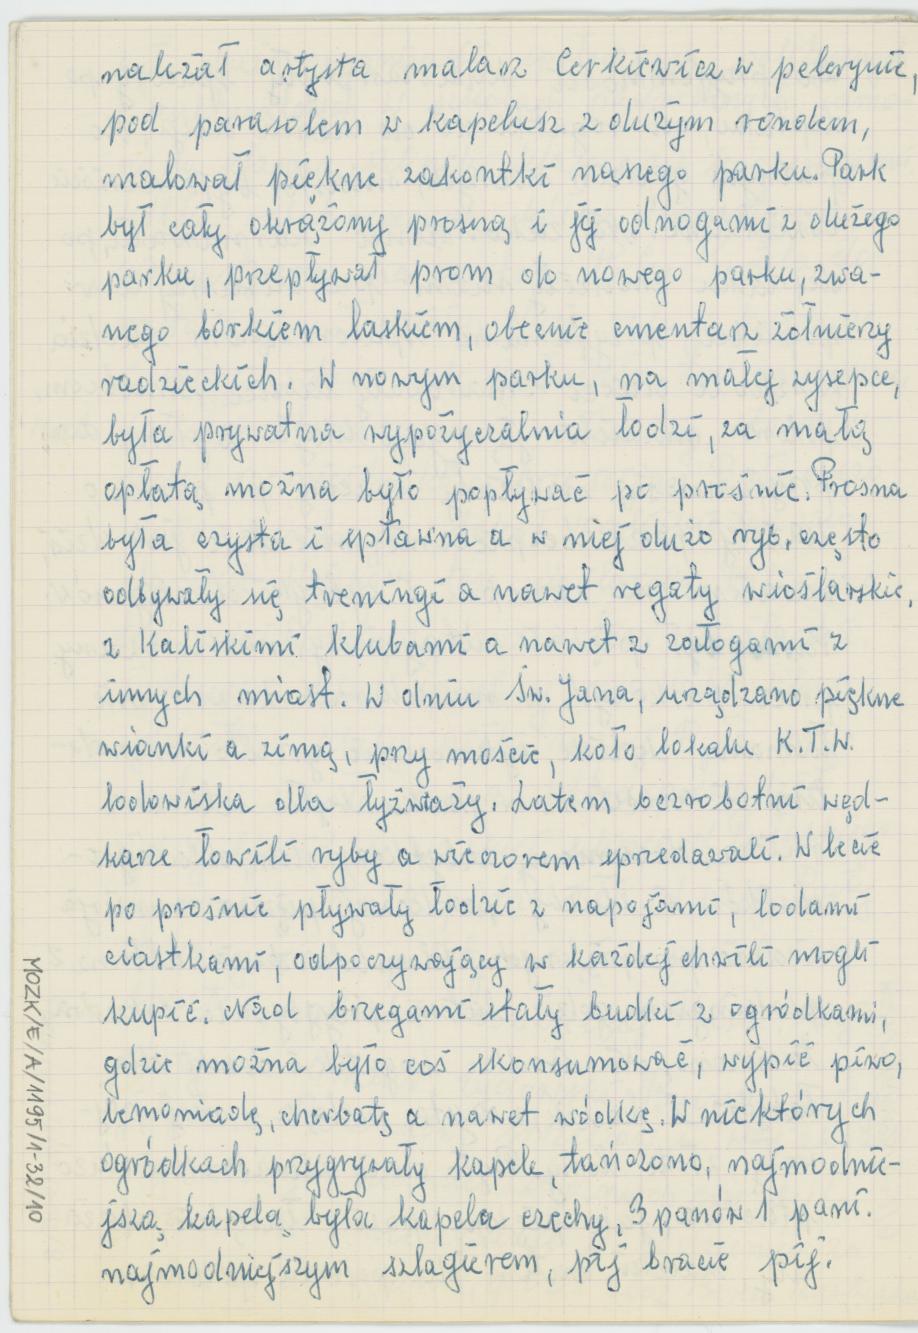 należał artysta malarz Cerkiewicz w pelerynie,
pod parasolem w kapelusz z dużym rondem,
malował piękne zakontki naszego parku. Park
był cały okrążony prosną i jej odnogami z dużego
parku, przepływał prom do nowego parku, zwa-
nego borkiem laskiem, obecnie cmentarz żółnierzy
radzieckich. W nowym parku, na małej wysepce,
była prywatna wypożyczalnia łodzi, za małą
opłatą można było popływać po prośnie. Prosna
była czysta i spławna a w niej dużo ryb, często
odbywały się treningi a nawet regaty wioślarskie,
z Kaliskimi klubami a nawet z załogami z
innych miast. W dniu Św. Jana, urządzano piękne
wianki a zimą, przy moście, koło lokalu K.T.W.
lodowiska dla łyżwiaży. Latem bezrobotni węd-
karze łowili ryby a wieczorem sprzedawali. W lecie
po prośnie pływały łodzie z napojami, lodami
ciastkami, odpoczywający w każdej chwili mogli
kupić. Nad brzegami stały budki z ogródkami,
gdzie można było coś skonsumować, wypić piwo,
lemoniadę, cherbatę a nawet wódkę. W niektórych
ogródkach przygrywały kapele, tańczono, najmodnie-
jszą kapelą była kapela czechy, 3 panów 1 pani.
najmodniejszym szlagierem, pij bracie pij.
MOZK/E/A/1195/1-32/10